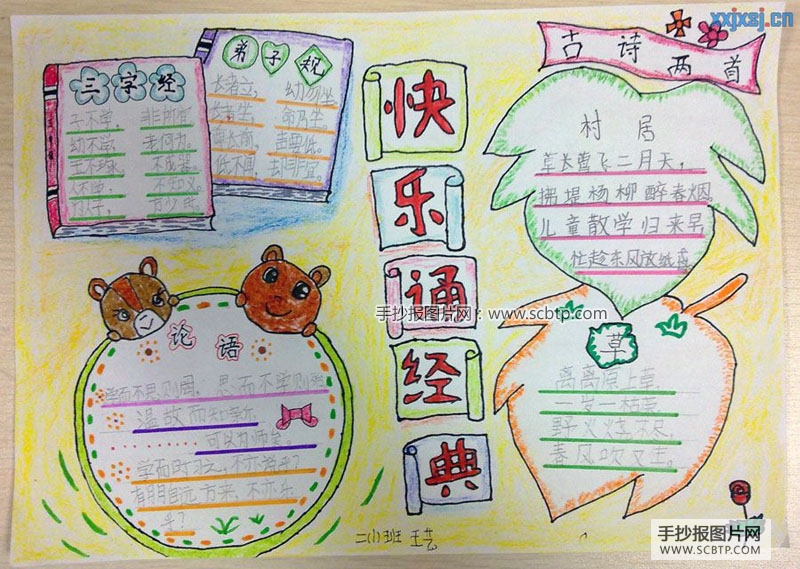 xxjxsj.cn
三字经
子不学，非所宜
幼不学，老何为。
玉不琢，不成器
人不学，不知义。
为人子，方少时
弟子规
长者立，幼勿坐
长者坐，命乃坐。
尊长前，声要低
低不闻，却非宜。
快乐诵经典
古诗两首
村居
草长莺飞二月天，
拂堤杨柳醉春烟
儿童散学归来早
忙趁东风放纸鸢
手抄报图片网：www.scbtp.com
论语
学而不思则罔，思而不学则殆
温故而知新
可以为师矣。
学而时习之，不亦说乎？
有朋自远方来，不亦乐
乎？
草
离离原上草
一岁一枯荣
野火烧不尽
春风吹又生。
二(1)班 王芸
手抄报图片网
WWW.SCBTP.COM